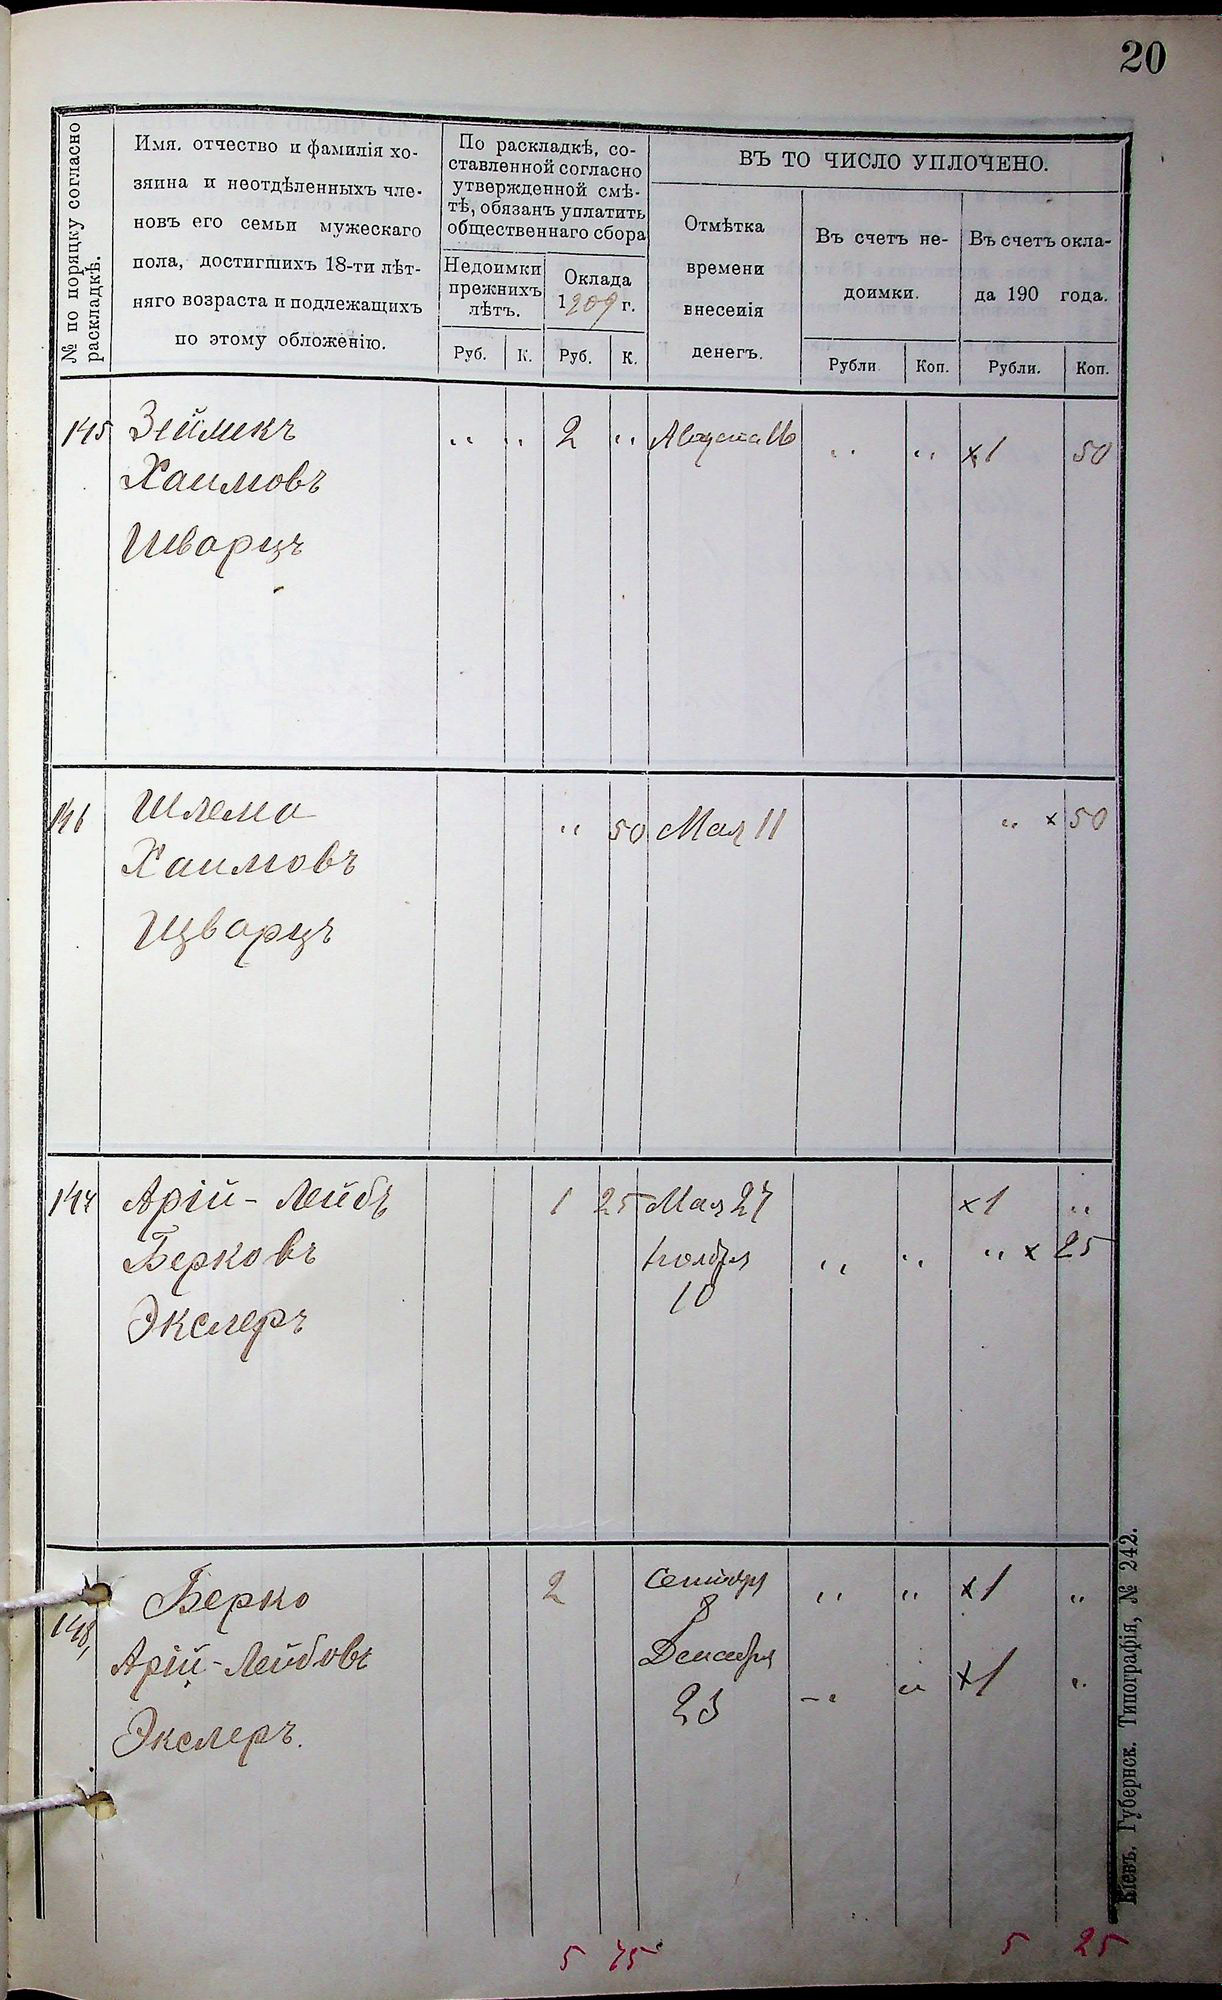 20
№ по порядку согласно раскладкѣ.
Имя, отчество и фамилія хо-
зяина и неотдѣленныхъ чле-
новъ его семьи мужескаго
пола, достигшихъ 18-ти лѣт-
няго возраста и подлежащихъ
по этому обложенію.
По раскладкѣ, со-
ставленной согласно
утвержденной смѣ-
тѣ, обязанъ уплатить
общественнаго сбора
Недоимки
прежнихъ
лѣтъ.
Оклада
1909 г.
Руб. К. Руб. К.
ВЪ ТО ЧИСЛО УПЛОЧЕНО.
Отмѣтка
времени
внесенія
денегъ.
Въ счетъ не-
доимки.
Въ счетъ окла-
да 190 года.
Рубли Коп. Рубли. Коп.
145 Зейликъ „ „ 2 „ Августа 16 „ „ x1 50
Хаимовъ
Шварцъ
146 Шлема „ 50 Мая 11 „ x 50
Хаимовъ
Шварцъ
147 Арій-Лейбъ 1 25 Мая 27 x1 „
Берковъ Ноября „ „ „ x 25
10
Экслеръ
148, Берко 2 Сентября „ „ x1 „
8
Арій-Лейбовъ Декабря „ „ x1 „
23
Экслеръ.
5 75 5 25
Кіевъ, Губернск. Типографія, № 242.